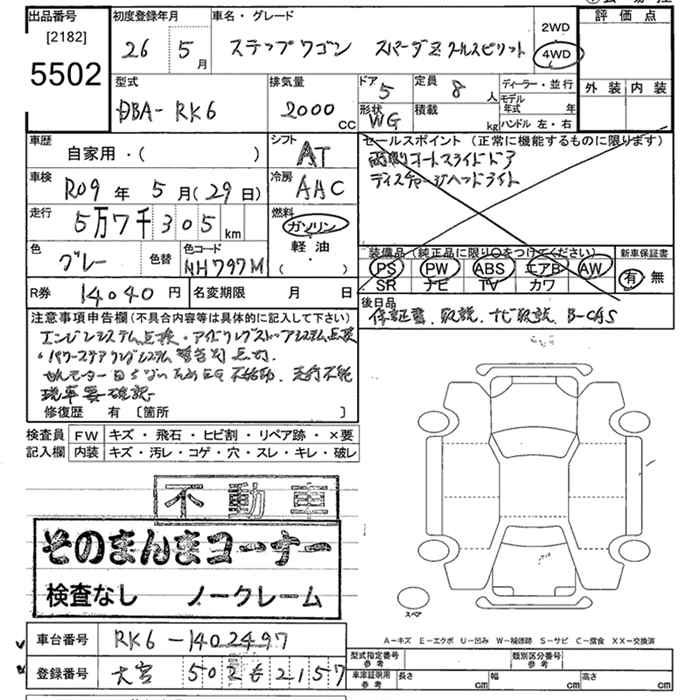 出品番号
[2182]
5502
初度登録年月
26 5月
車名・グレード
ステップワゴン スパーダZ クールスピリット
2WD
4WD
評価点
外装 内装
型式
DBA-RK6
排気量
2000 CC
ドア
5
定員
8人
形状
WG
積載
kg
ディーラー・並行
モデル年式 年
ハンドル 左・右
車歴
自家用・( )
シフト
AT
車検
R09年5月(29日)
冷房
AAC
走行
5万7千305km
燃料
ガソリン
軽油
( )
色
グレー
色替
色コード
NH797M
R券
14040円
名変期限 月 日
セールスポイント(正常に機能するものに限ります)
両側オートスライドドア
ディスチャージヘッドライト
装備品(純正品に限り○をつけてください)
PS PW ABS エアB AW
SR ナビ TV カワ
新車保証書
有 無
後日品
保証書、取説、ナビ取説、B-CAS
注意事項申告欄(不具合内容等は具体的に記入して下さい)
エンジンシステム点検・アイドリングストップシステム点検
・パワーステアリングシステム 警告灯点灯
不始動、走行不能
現車要確認
修復歴 有 [箇所 ]
検査員 FW キズ・飛石・ヒビ割・リペア跡・×要
記入欄 内装 キズ・汚レ・コゲ・穴・スレ・キレ・破レ
不動車
そのまんまコーナー
検査なし ノークレーム
スペア
A-キズ E-エクボ U-凹み W-補修跡 S-サビ C-腐食 XX-交換済
車台番号 RK6-1402497
登録番号 大宮 502 そ 2157
型式指定番号 参考
類別区分番号 参考
車庫証明用 参考
長さ cm
幅 cm
高さ cm